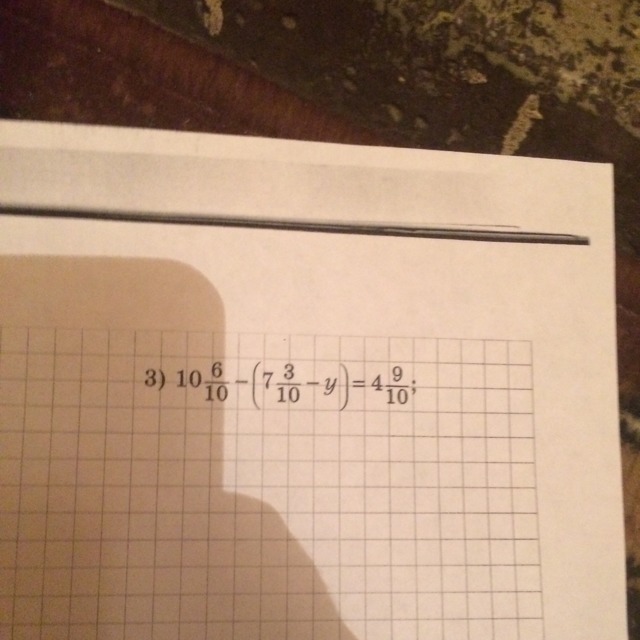 3) 10 6/10 − (7 3/10 − y) = 4 9/10;